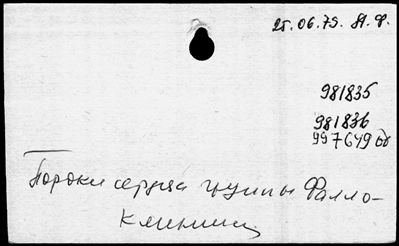 25.06.75. Я.Ф.
981835
981836
997649 бб
Пороки сердца группы Фалло-
клиниц.